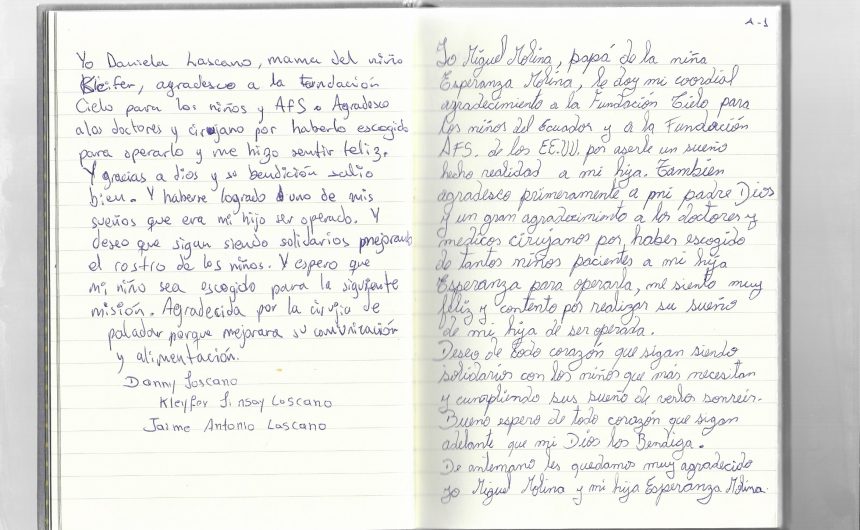 Yo Daniela Lascano, mama del niño
Kleifer, agradesco a la fundación
Cielo para los niños y AFS o Agradesco
a los doctores y cirujano por haberlo escogido
para operarlo y me hizo sentir feliz.
Y gracias a dios y su bendición salio
bien. Y haberse logrado uno de mis
sueños que era mi hijo ser operado. Y
deseo que sigan siendo solidarios mejorando
el rostro de los niños. Y espero que
mi niño sea escogido para la siguiente
misión. Agradecida por la cirugia de
paladar porque mejorara su comunicación
y alimentación.
Danny Loscano
Kleyfer Linsay Loscano
Jaime Antonio Lascano
A-1
Yo Miguel Molina, papá de la niña
Esperanza Molina, le doy mi coordial
agradecimiento a la Fundación Cielo para
los niños del Ecuador y a la Fundación
AFS. de los EE.UU. por aserle un sueño
hecho realidad a mi hija. También
agradesco primeramente a mi padre Dios
y un gran agradecimiento a los doctores y
medicos cirujanos por haber escogido
de tantos niños pacientes a mi hija
Esperanza para operarla, me siento muy
feliz y contento por realizar su sueño
de mi hija de ser operada.
Deseo de todo corazón que sigan siendo
solidarios con los niños que más necesitan
y cumpliendo sus sueño de verlos sonreir.
Bueno espero de todo corazón que sigan
adelante que mi Dios los Bendiga.
De antemano les quedamos muy agradecido
yo Miguel Molina y mi hija Esperanza Molina